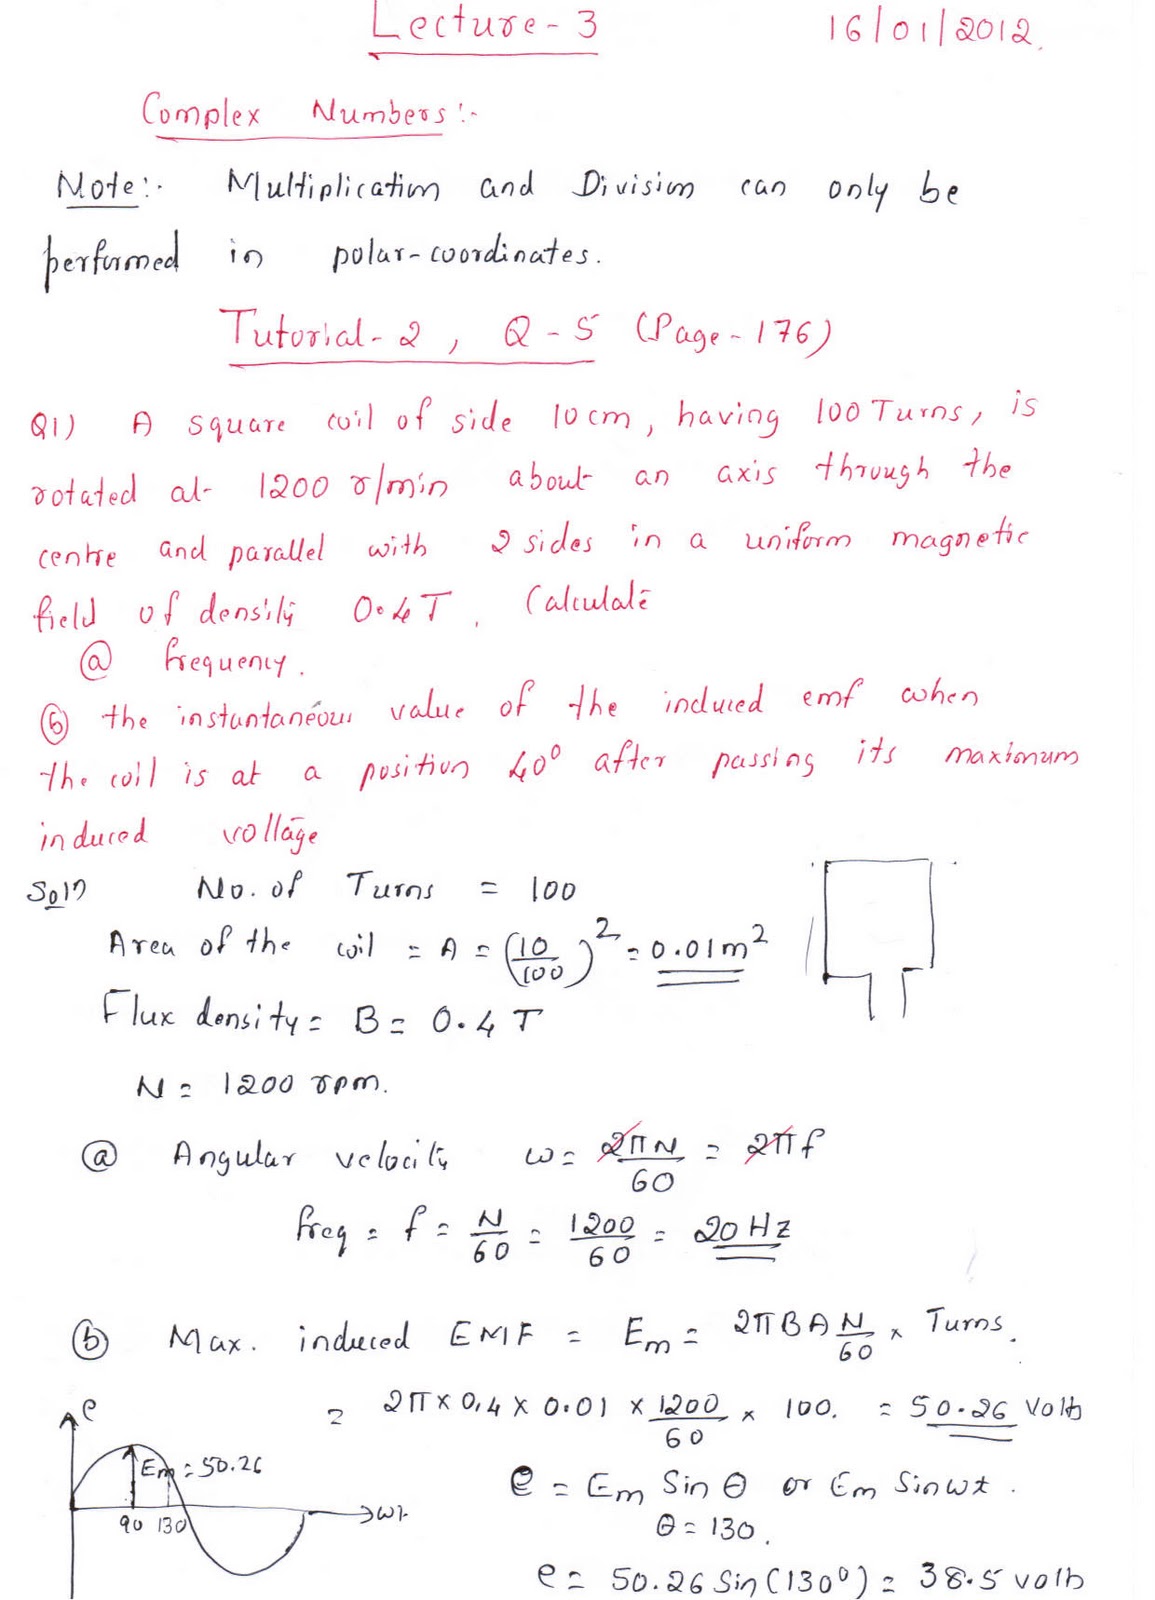 Lecture-3 16/01/2012.
Complex Numbers:-
Note:- Multiplication and Division can only be
performed in polar-coordinates.
Tutorial-2, Q-5 (Page-176)
Q1) A square coil of side 10cm, having 100 Turns, is
rotated at 1200 r/min about an axis through the
centre and parallel with 2 sides in a uniform magnetic
field of density 0.4T. Calculate
(a) frequency.
(b) the instantaneous value of the induced emf when
the coil is at a position 40° after passing its maximum
induced voltage
Soln No. of Turns = 100
Area of the coil = A = (10/100)² = 0.01m²
Flux density = B = 0.4 T
N = 1200 rpm.
(a) Angular velocity ω = 2πN/60 = 2πf
freq = f = N/60 = 1200/60 = 20 Hz
(b) Max. induced EMF = Em = 2πBA N/60 × Turns.
= 2π × 0.4 × 0.01 × 1200/60 × 100. = 50.26 Volts
e
Em = 50.26
90 130 ωt
e = Em Sin θ or Em Sinωt.
θ = 130.
e = 50.26 Sin(130°) = 38.5 volts